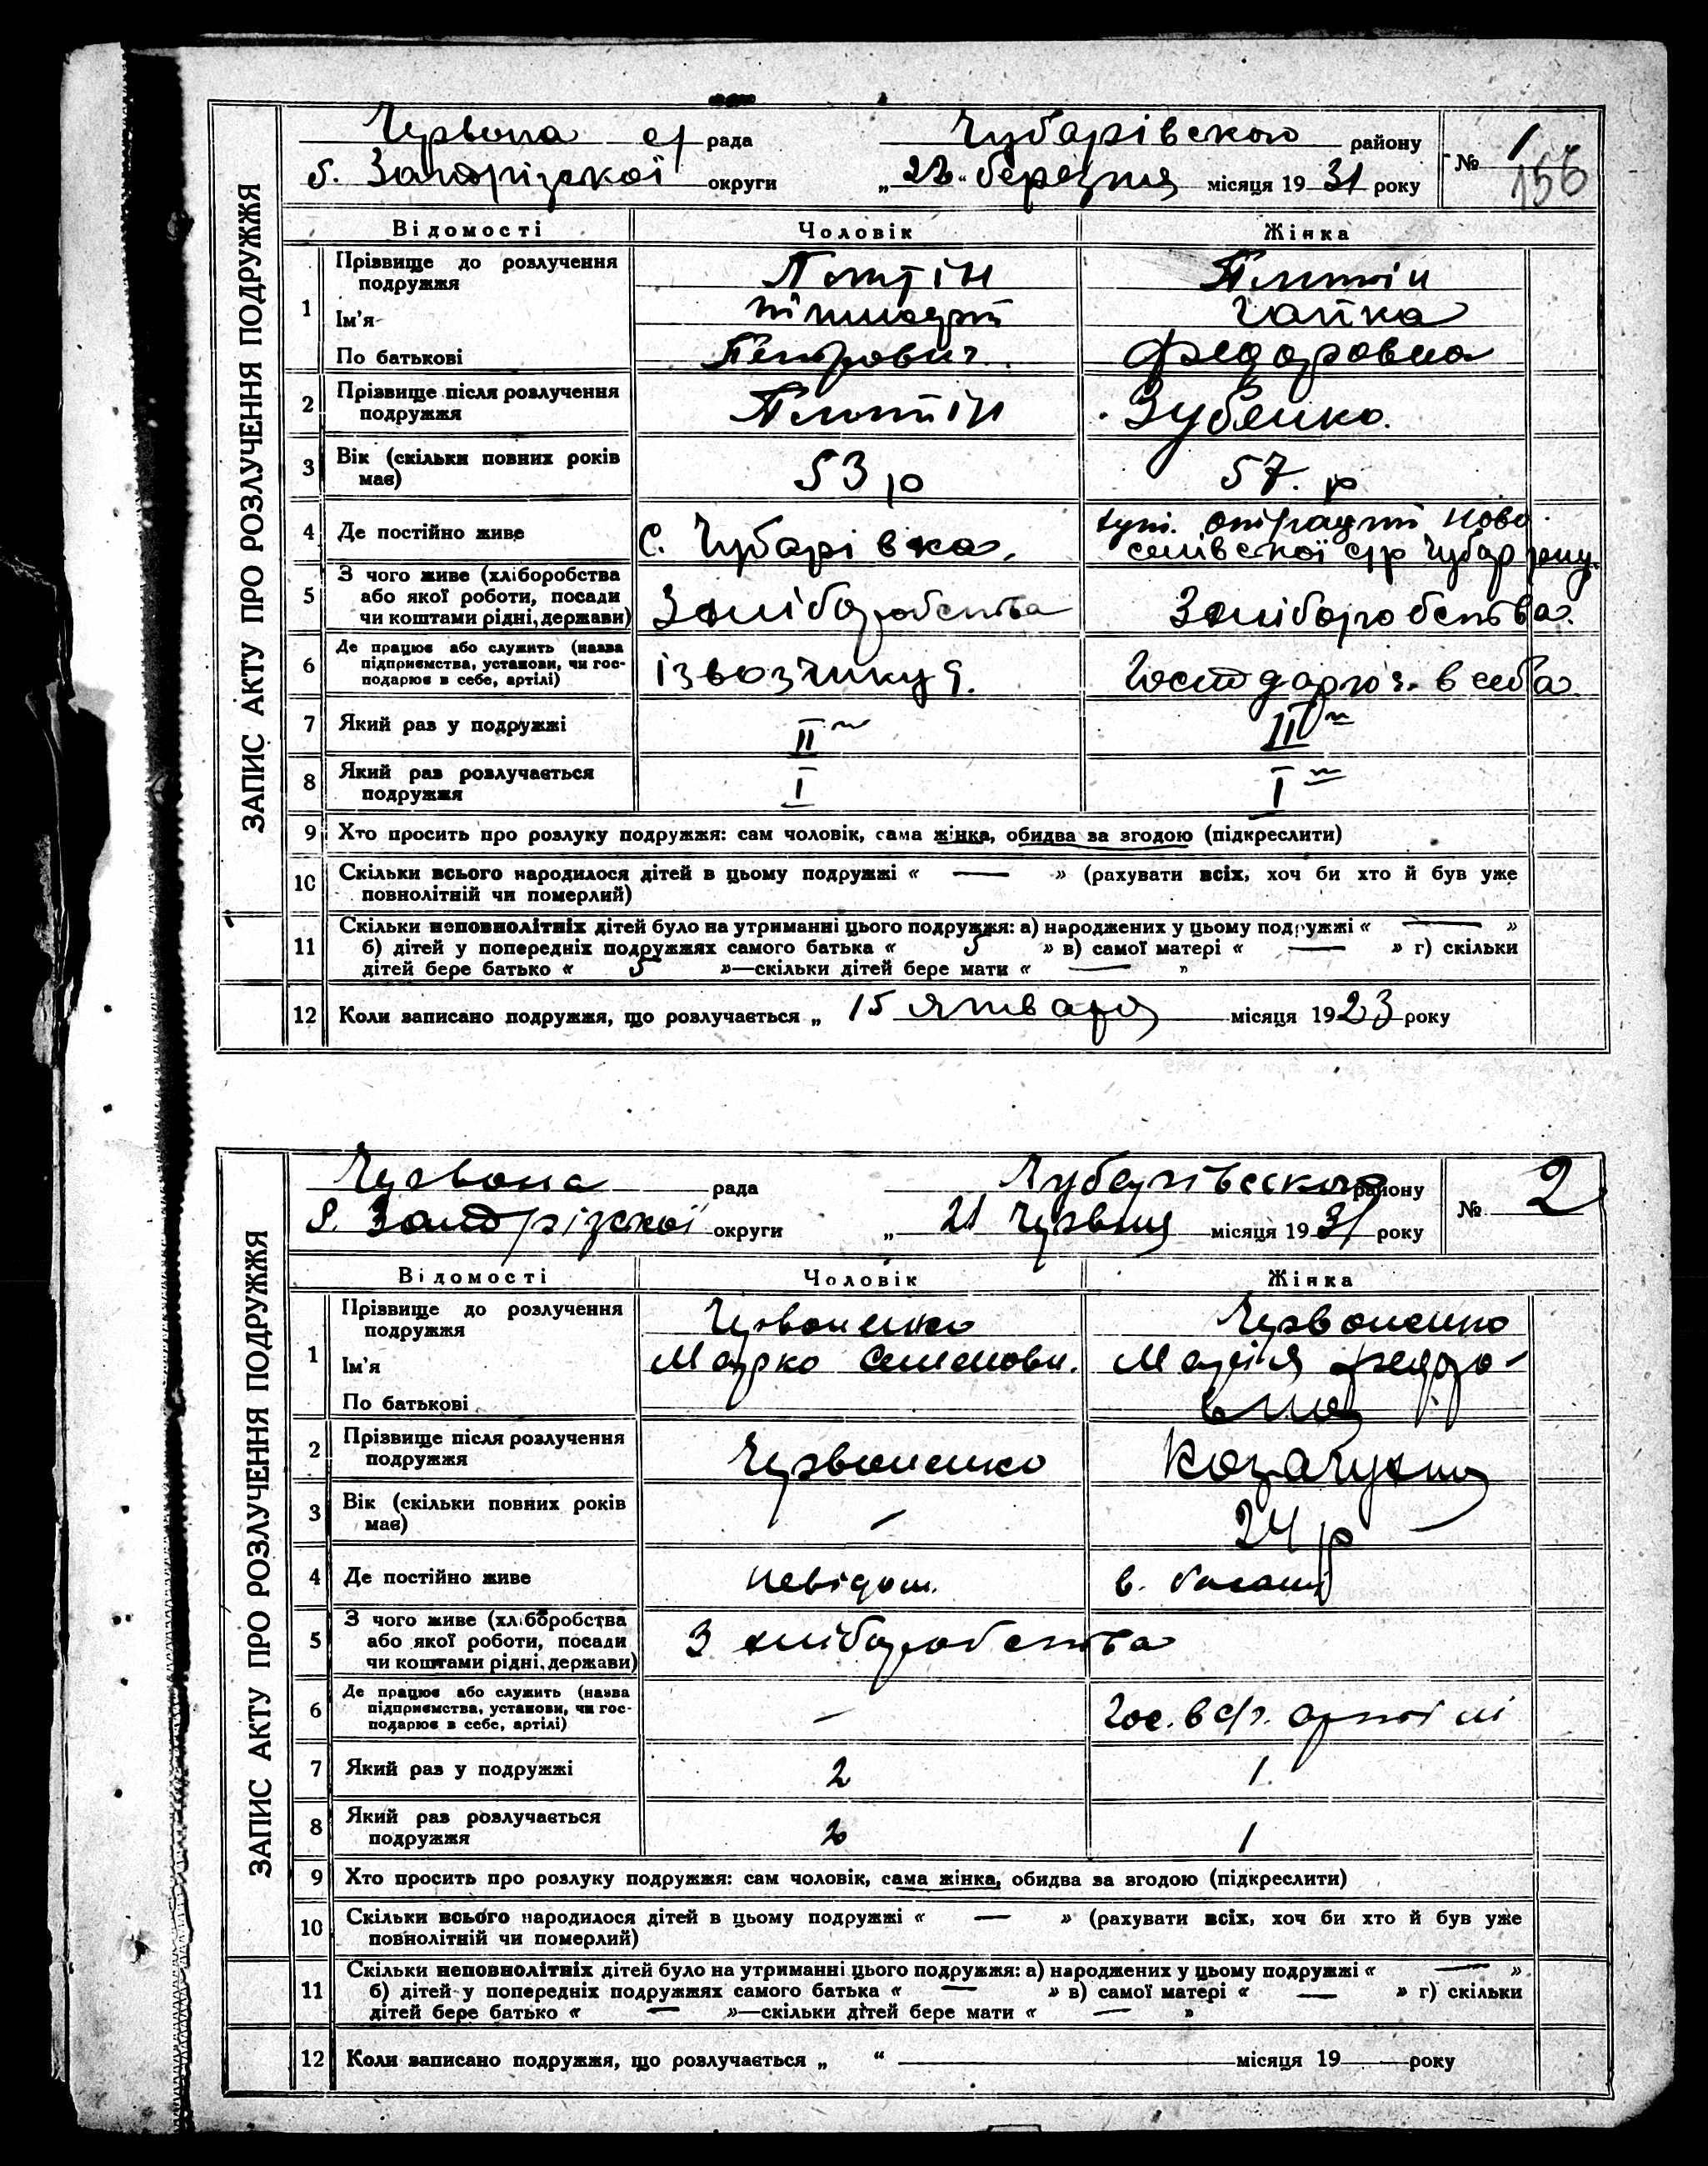 ЗАПИС АКТУ ПРО РОЗЛУЧЕННЯ ПОДРУЖЖЯ
Червона с/ рада Чубарівского району № 1
б. Запорізскої округи „22“ березня місяця 1931 року 156
Відомості Чоловік Жінка
1 Прізвище до розлучення
подружжя
Ім'я Гапка
По батькові Петрович Федоровна
2 Прізвище після розлучення
подружжя Зубенко.
3 Вік (скільки повних років
має) 53 р 57. р
4 Де постійно живе С. Чубарівка. Ново
селівської с/р Чубар
5 З чого живе (хліборобства
або якої роботи, посади
чи коштами рідні, держави) З хліборобства З хліборобства.
6 Де працює або служить (назва
підприємства, установи, чи гос-
подарює в себе, артілі) ізвозчикує. Господарює в себе
7 Який раз у подружжі II III
8 Який раз розлучається
подружжя I I
9 Хто просить про розлуку подружжя: сам чоловік, сама жінка, обидва за згодою (підкреслити)
10 Скільки всього народилося дітей в цьому подружжі « — » (рахувати всіх, хоч би хто й був уже
повнолітній чи померлий)
11 Скільки неповнолітніх дітей було на утриманні цього подружжя: а) народжених у цьому подружжі « — »
б) дітей у попередніх подружжях самого батька « 5 » в) самої матері « — » г) скільки
дітей бере батько « 5 »—скільки дітей бере мати « — »
12 Коли записано подружжя, що розлучається „ 15 января місяця 1923 року
ЗАПИС АКТУ ПРО РОЗЛУЧЕННЯ ПОДРУЖЖЯ
Червона рада Чубарівского району № 2
б. Запорізкої округи „ 21 Червня місяця 1931 року
Відомості Чоловік Жінка
1 Прізвище до розлучення Червоненко Червоненко
подружжя
Ім'я Марко Семенови. Марія Федоро-
По батькові вна
2 Прізвище після розлучення
подружжя Червоненко
3 Вік (скільки повних років
має) — 24 р —
4 Де постійно живе невідом.
5 З чого живе (хліборобства
або якої роботи, посади
чи коштами рідні, держави) З хліборобства
6 Де працює або служить (назва
підприємства, установи, чи гос-
подарює в себе, артілі) — Гос. в с/г. артілі
7 Який раз у подружжі 2 1
8 Який раз розлучається
подружжя 2 1
9 Хто просить про розлуку подружжя: сам чоловік, сама жінка, обидва за згодою (підкреслити)
10 Скільки всього народилося дітей в цьому подружжі « — » (рахувати всіх, хоч би хто й був уже
повнолітній чи померлий)
11 Скільки неповнолітніх дітей було на утриманні цього подружжя: а) народжених у цьому подружжі « — »
б) дітей у попередніх подружжях самого батька « — » в) самої матері « — » г) скільки
дітей бере батько « — »—скільки дітей бере мати « — »
12 Коли записано подружжя, що розлучається „ “ місяця 19 року